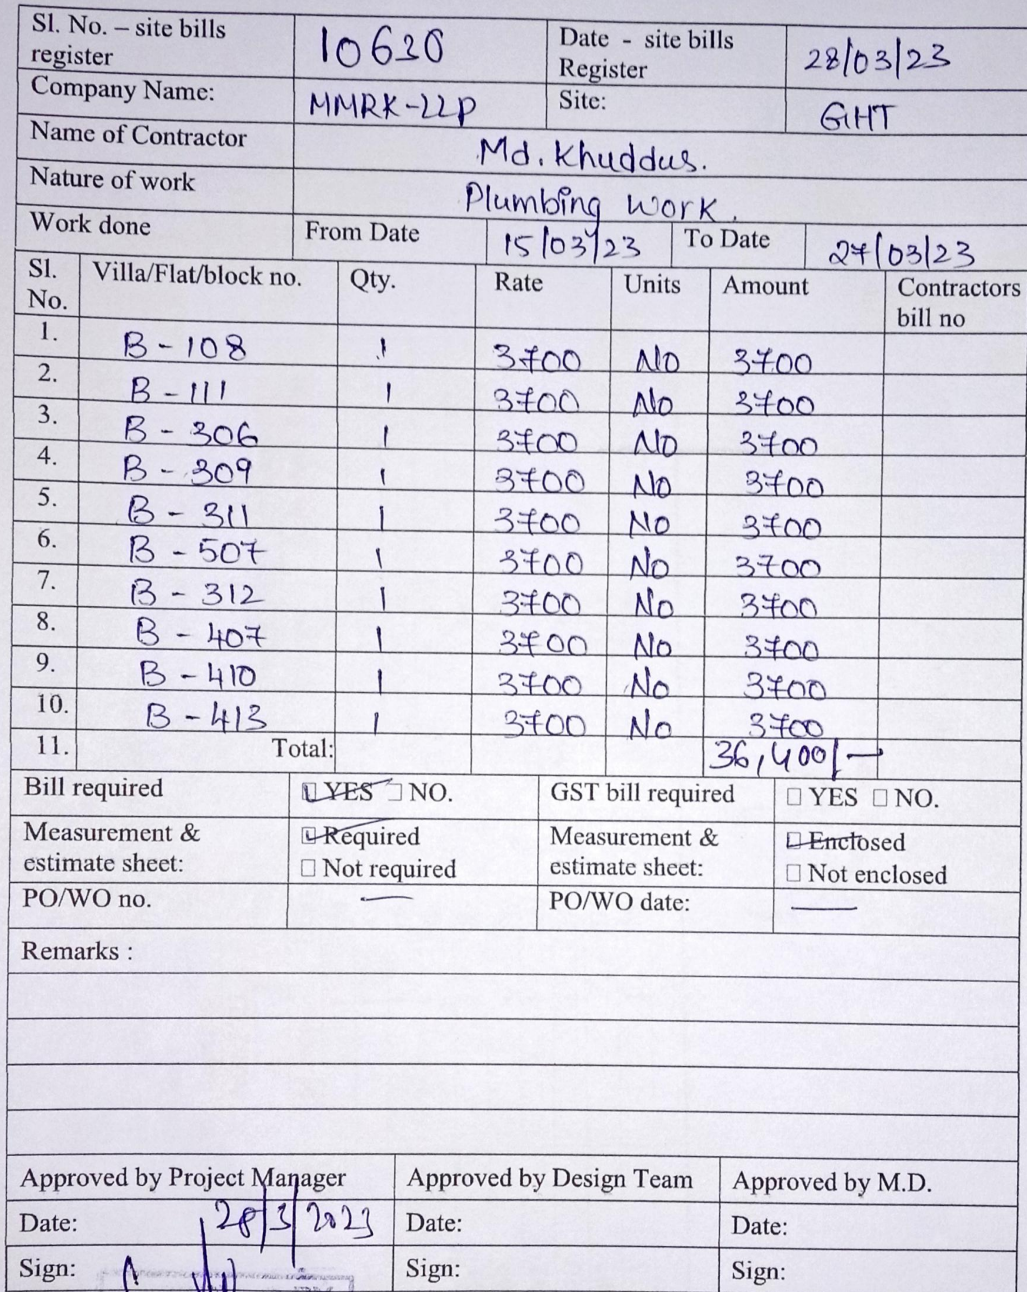 Sl. No. – site bills register 10630 Date - site bills Register 28/03/23
Company Name: MMRK-LLP Site: GHT
Name of Contractor Md. Khuddus.
Nature of work Plumbing work.
Work done From Date 15/03/23 To Date 27/03/23
Sl. No. Villa/Flat/block no. Qty. Rate Units Amount Contractors bill no
1. B - 108 1 3700 No 3700
2. B - 111 1 3700 No 3700
3. B - 306 1 3700 No 3700
4. B - 309 1 3700 No 3700
5. B - 311 1 3700 No 3700
6. B - 507 1 3700 No 3700
7. B - 312 1 3700 No 3700
8. B - 407 1 3700 No 3700
9. B - 410 1 3700 No 3700
10. B - 413 1 3700 No 3700
11. Total: 36,400/-
Bill required YES NO. GST bill required YES NO.
Measurement & estimate sheet: Required Not required Measurement & estimate sheet: Enclosed Not enclosed
PO/WO no. — PO/WO date: —
Remarks :
Approved by Project Manager Approved by Design Team Approved by M.D.
Date: 28/3/2023 Date: Date:
Sign: Sign: Sign: